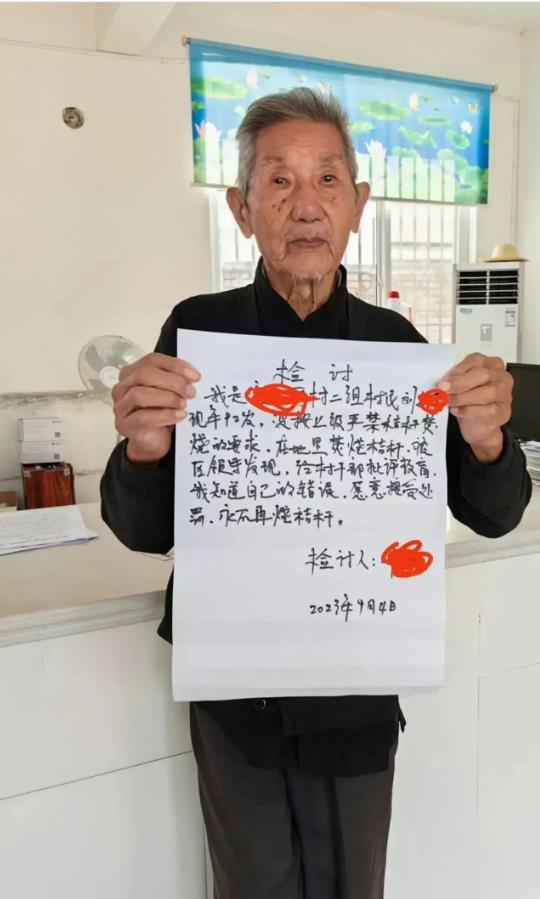 检 讨
我是 村二组村民刘
现年92岁，没按上级严禁秸秆焚
烧的要求，在地里焚烧秸秆，被
区领导发现，给村干部批评教育，
我知道自己的错误，愿意接受处
罚、永不再烧秸秆。
检讨人：
2023年9月4日